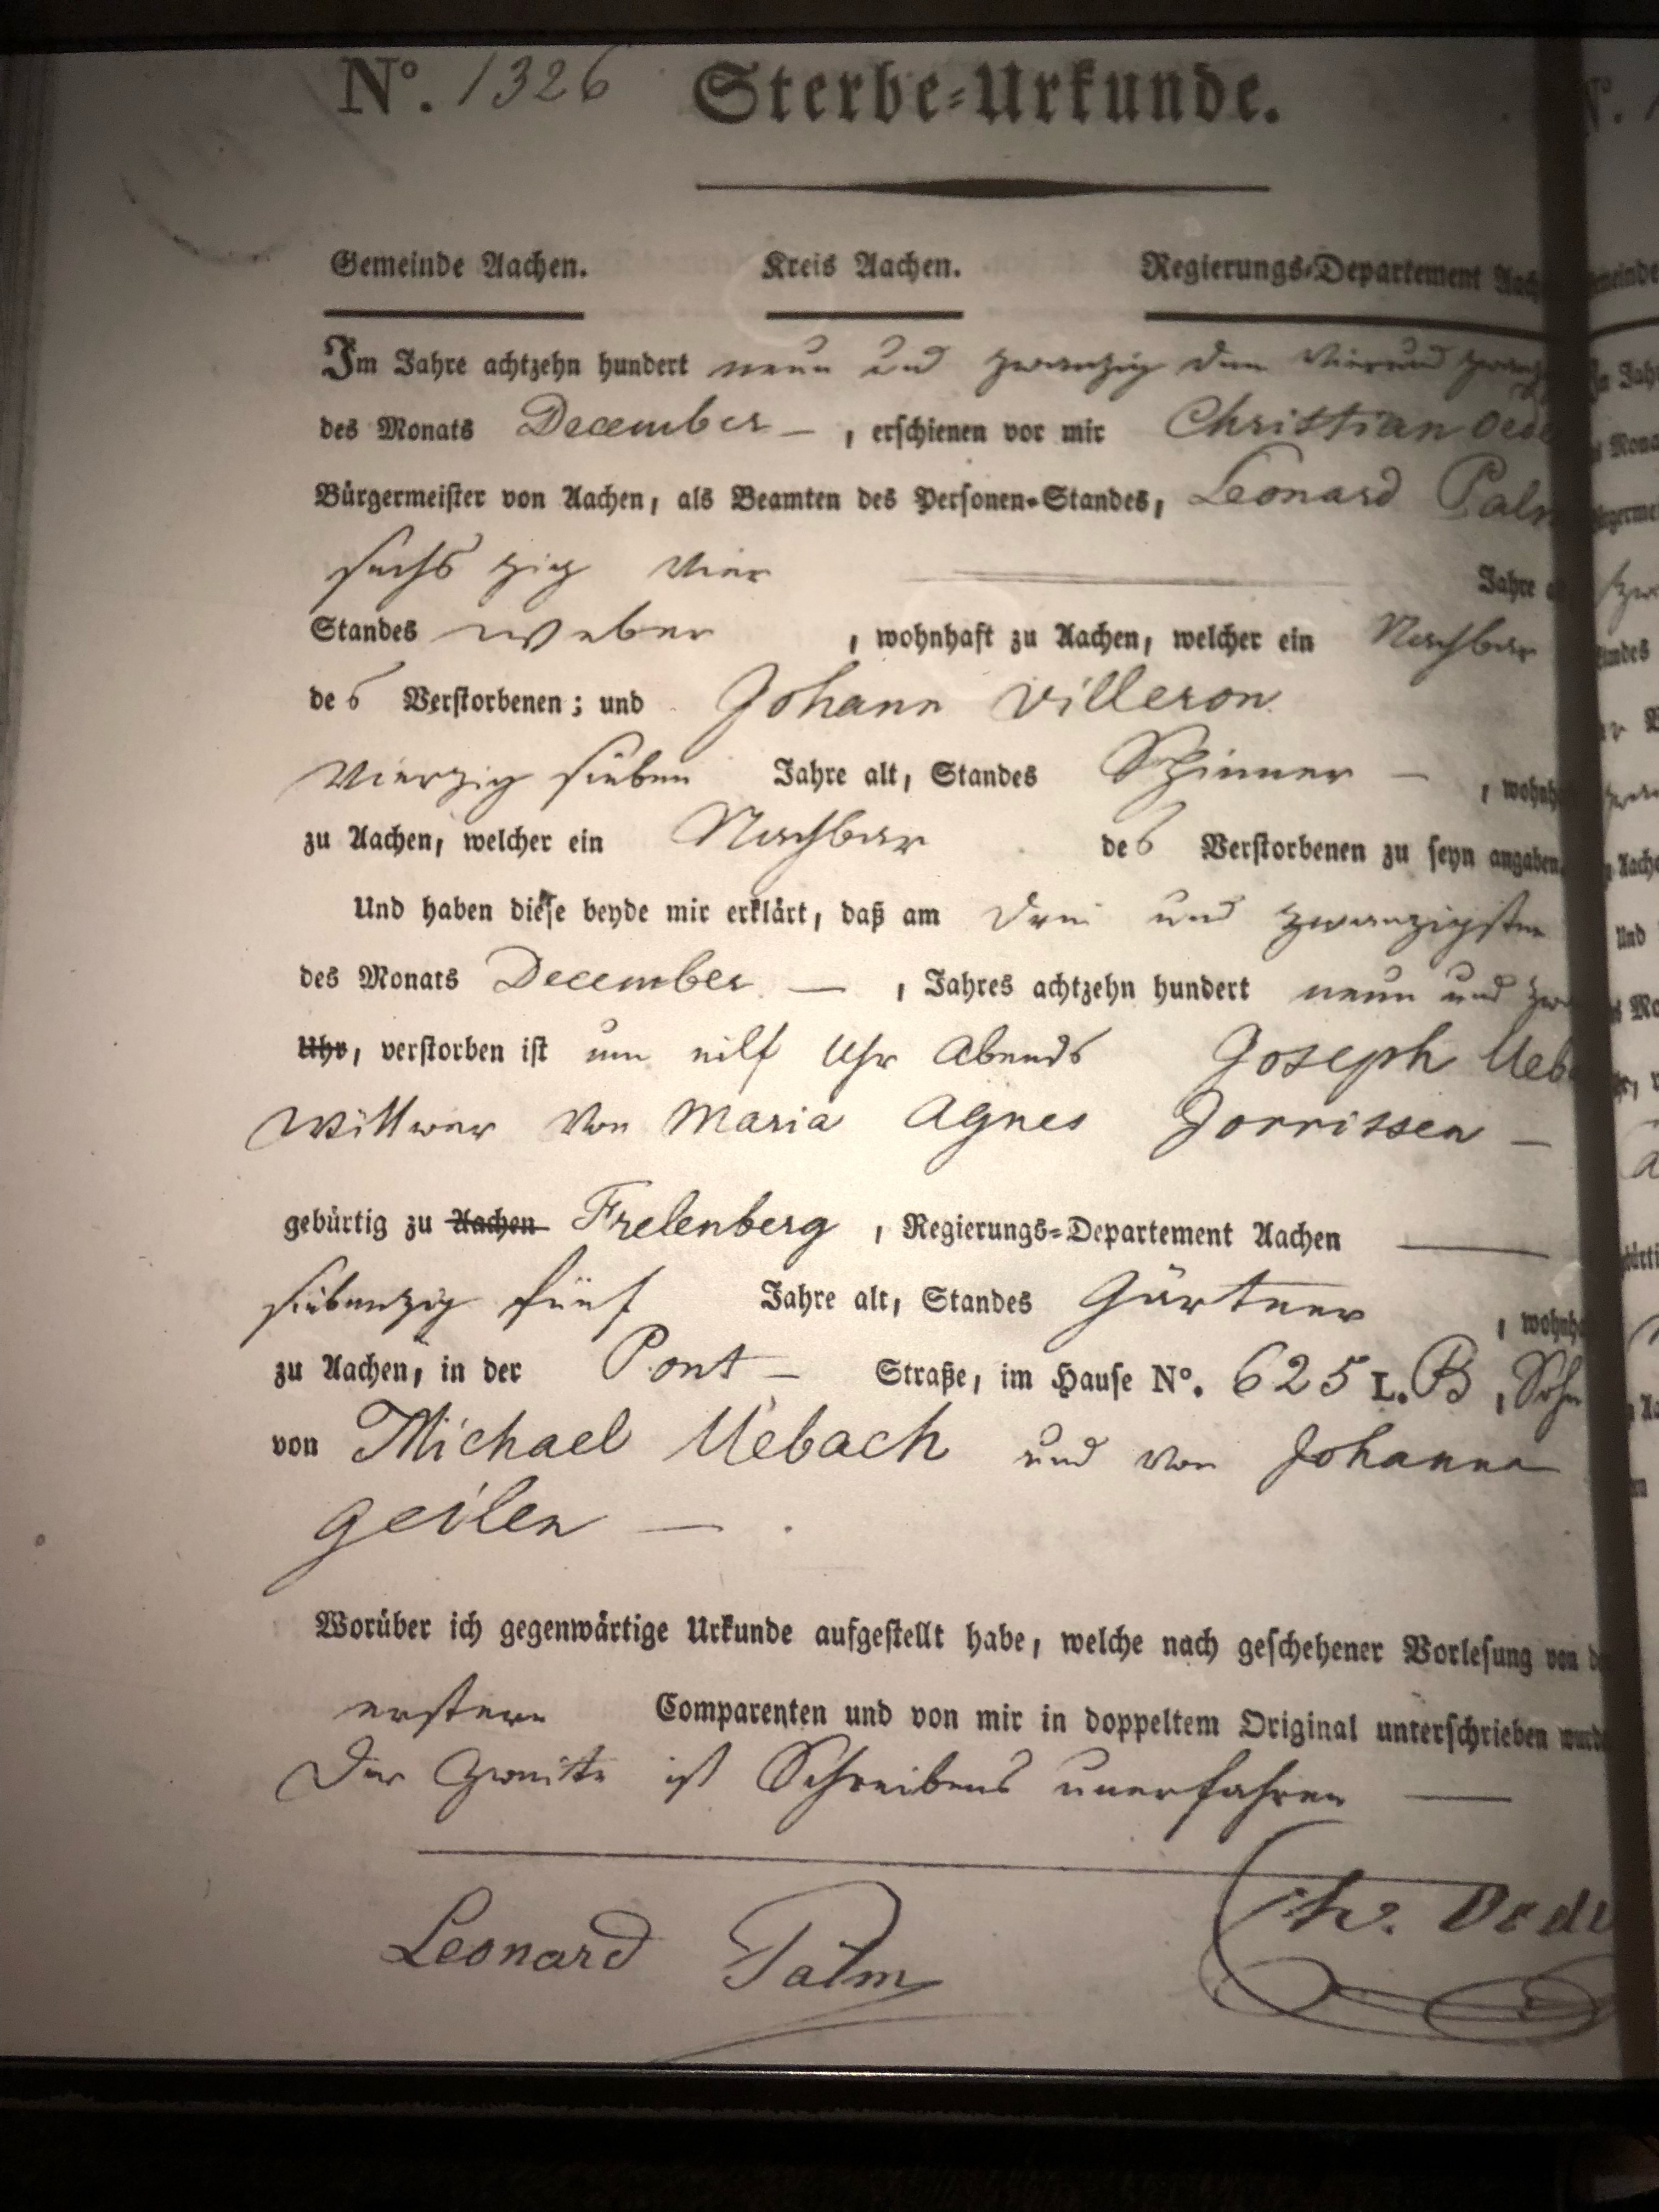 No. 1326 Sterbe-Urkunde.
Gemeinde Aachen. Kreis Aachen. Regierungs-Departement Aach
Im Jahre achtzehn hundert neun und zwanzig den Vierund zwanz
des Monats December — , erschienen vor mir Christian Oede
Bürgermeister von Aachen, als Beamten des Personen-Standes, Leonard Palm
sechszig vier Jahre a
Standes Weber , wohnhaft zu Aachen, welcher ein Nachbar
des Verstorbenen; und Johann Villeron
Vierzig sieben Jahre alt, Standes Spinner — , wohnh
zu Aachen, welcher ein Nachbar des Verstorbenen zu seyn angaben.
Und haben diese beyde mir erklärt, daß am drei und zwanzigsten
des Monats December — , Jahres achtzehn hundert neun und zwa
Uhr, verstorben ist um eilf Uhr Abends Joseph Ueb
Wittwer von Maria Agnes Jorrissen —
gebürtig zu Aachen Frelenberg , Regierungs-Departement Aachen —
siebenzig fünf Jahre alt, Standes Gärtner , wohnh
zu Aachen, in der Pont — Straße, im Hause No. 625 L. B , Sohn
von Michael Uebach und von Johanna
Geilen — .
Worüber ich gegenwärtige Urkunde aufgestellt habe, welche nach geschehener Vorlesung von d
erstern Comparenten und von mir in doppeltem Original unterschrieben wurd
Der Zweite ist Schreibens unerfahren —
Leonard Palm Chr. Oede